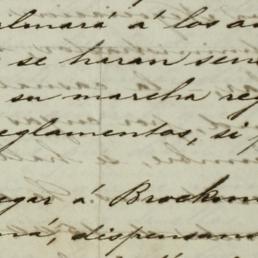 lmará á los a
se haran sen
su marcha re
eglamentos, si p
egar á Brockm
ná, dispensan